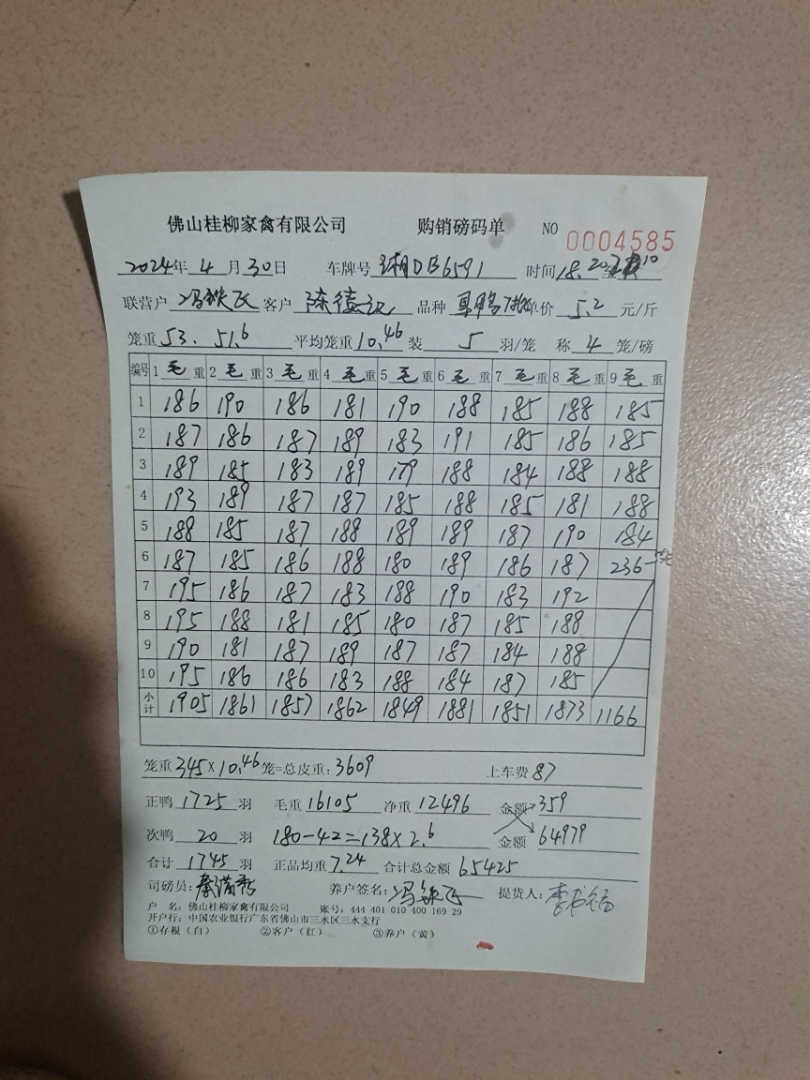 佛山桂柳家禽有限公司 购销磅码单 NO 0004585
2024年 4 月 30 日 车牌号 湘DB6591 时间 18.20
联营户 冯铁飞 客户 陈德 品种 单价 5.2 元/斤
笼重 53. 51.6 平均笼重 10.46 装 5 羽/笼 称 4 笼/磅
编号 1 毛 重 2 毛 重 3 毛 重 4 毛 重 5 毛 重 6 毛 重 7 毛 重 8 毛 重 9 毛 重
1 186 190 186 181 190 188 185 188 185
2 187 186 187 189 183 191 185 186 185
3 189 185 183 189 179 188 184 188 188
4 193 189 187 187 185 188 185 181 188
5 188 185 187 188 189 189 187 190 184
6 187 185 186 188 180 189 186 187 236
7 195 186 187 183 188 190 183 192
8 195 188 181 185 180 187 185 188
9 190 181 187 189 187 187 184 188
10 195 186 186 183 188 184 187 185
小计 1905 1861 1857 1862 1849 1881 1851 1873 1166
笼重 345×10.46 笼=总皮重: 3609 上车费 87
正鸭 1725 羽 毛重 16105 净重 12496 金额 359
次鸭 20 羽 180-42=138×2.6 金额 64979
合计 1745 羽 正品均重 7.24 合计总金额 65425
司磅员: 秦满秀 养户签名: 冯铁飞 提货人:
户 名: 佛山桂柳家禽有限公司 账号: 444 401 010 400 169 29
开户行: 中国农业银行广东省佛山市三水区三水支行
①存根(白) ②客户(红) ③养户(黄)